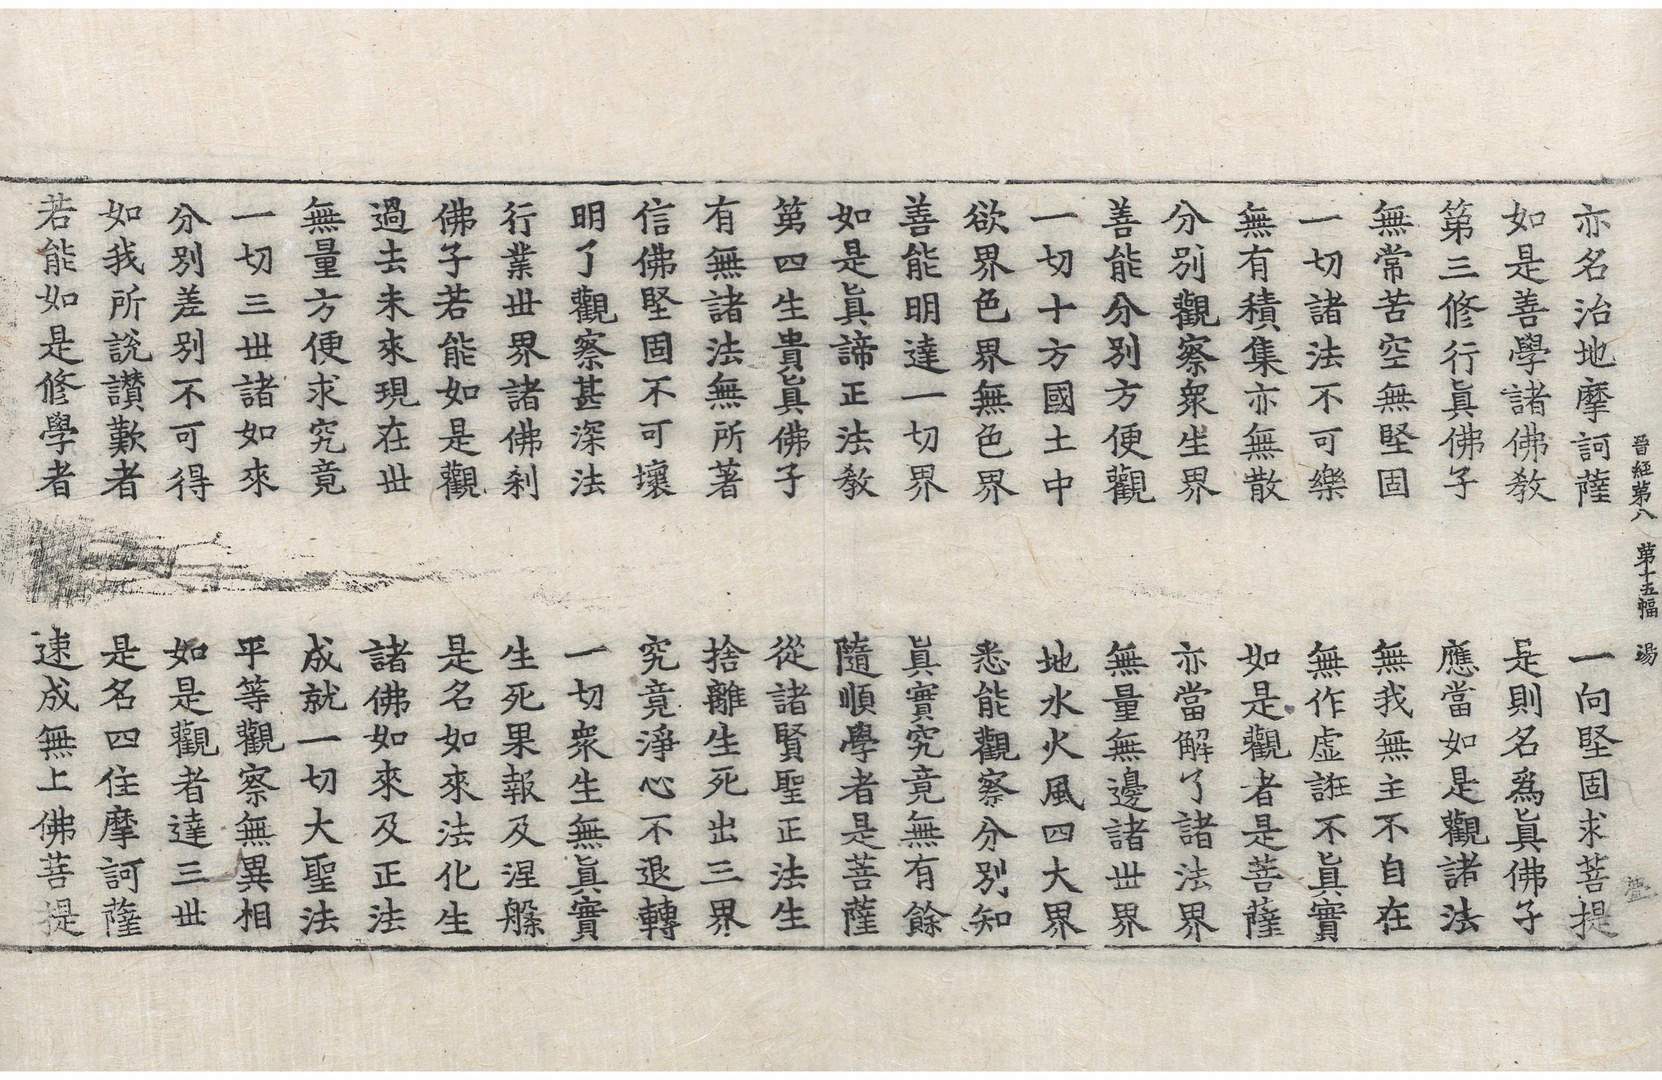 晉經第八 第十五幅 湯
亦名治地摩訶薩 一向堅固求菩提
如是善學諸佛教 是則名爲眞佛子
第三修行眞佛子 應當如是觀諸法
無常苦空無堅固 無我無主不自在
一切諸法不可樂 無作虛誑不眞實
無有積集亦無散 如是觀者是菩薩
分別觀察衆生界 亦當解了諸法界
善能分別方便觀 無量無邊諸世界
一切十方國土中 地水火風四大界
欲界色界無色界 悉能觀察分別知
善能明達一切界 眞實究竟無有餘
如是眞諦正法教 隨順學者是菩薩
第四生貴眞佛子 從諸賢聖正法生
有無諸法無所著 捨離生死出三界
信佛堅固不可壞 究竟淨心不退轉
明了觀察甚深法 一切衆生無眞實
行業世界諸佛刹 生死果報及涅槃
佛子若能如是觀 是名如來法化生
過去未來現在世 諸佛如來及正法
無量方便求究竟 成就一切大聖法
一切三世諸如來 平等觀察無異相
分別差別不可得 如是觀者達三世
如我所說讃歎者 是名四住摩訶薩
若能如是修學者 速成無上佛菩提